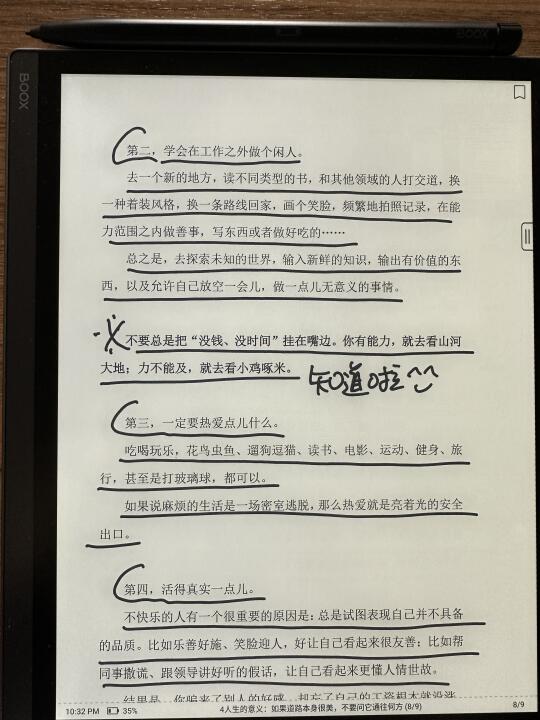 BOOX
BOOX
第二，学会在工作之外做个闲人。
去一个新的地方，读不同类型的书，和其他领域的人打交道，换
一种着装风格，换一条路线回家，画个笑脸，频繁地拍照记录，在能
力范围之内做善事，写东西或者做好吃的……
总之是，去探索未知的世界，输入新鲜的知识，输出有价值的东
西，以及允许自己放空一会儿，做一点儿无意义的事情。
不要总是把“没钱、没时间”挂在嘴边。你有能力，就去看山河
大地；力不能及，就去看小鸡啄米。
知道啦
第三，一定要热爱点儿什么。
吃喝玩乐，花鸟虫鱼、遛狗逗猫、读书、电影、运动、健身、旅
行，甚至是打玻璃球，都可以。
如果说麻烦的生活是一场密室逃脱，那么热爱就是亮着光的安全
出口。
第四，活得真实一点儿。
不快乐的人有一个很重要的原因是：总是试图表现自己并不具备
的品质。比如乐善好施、笑脸迎人，好让自己看起来很友善；比如帮
同事撒谎、跟领导讲好听的假话，让自己看起来更懂人情世故。
结果是，你骗来了别人的好感，却忘了自己的
10:32 PM 35% 4人生的意义：如果道路本身很美，不要问它通往何方 (8/9) 8/9